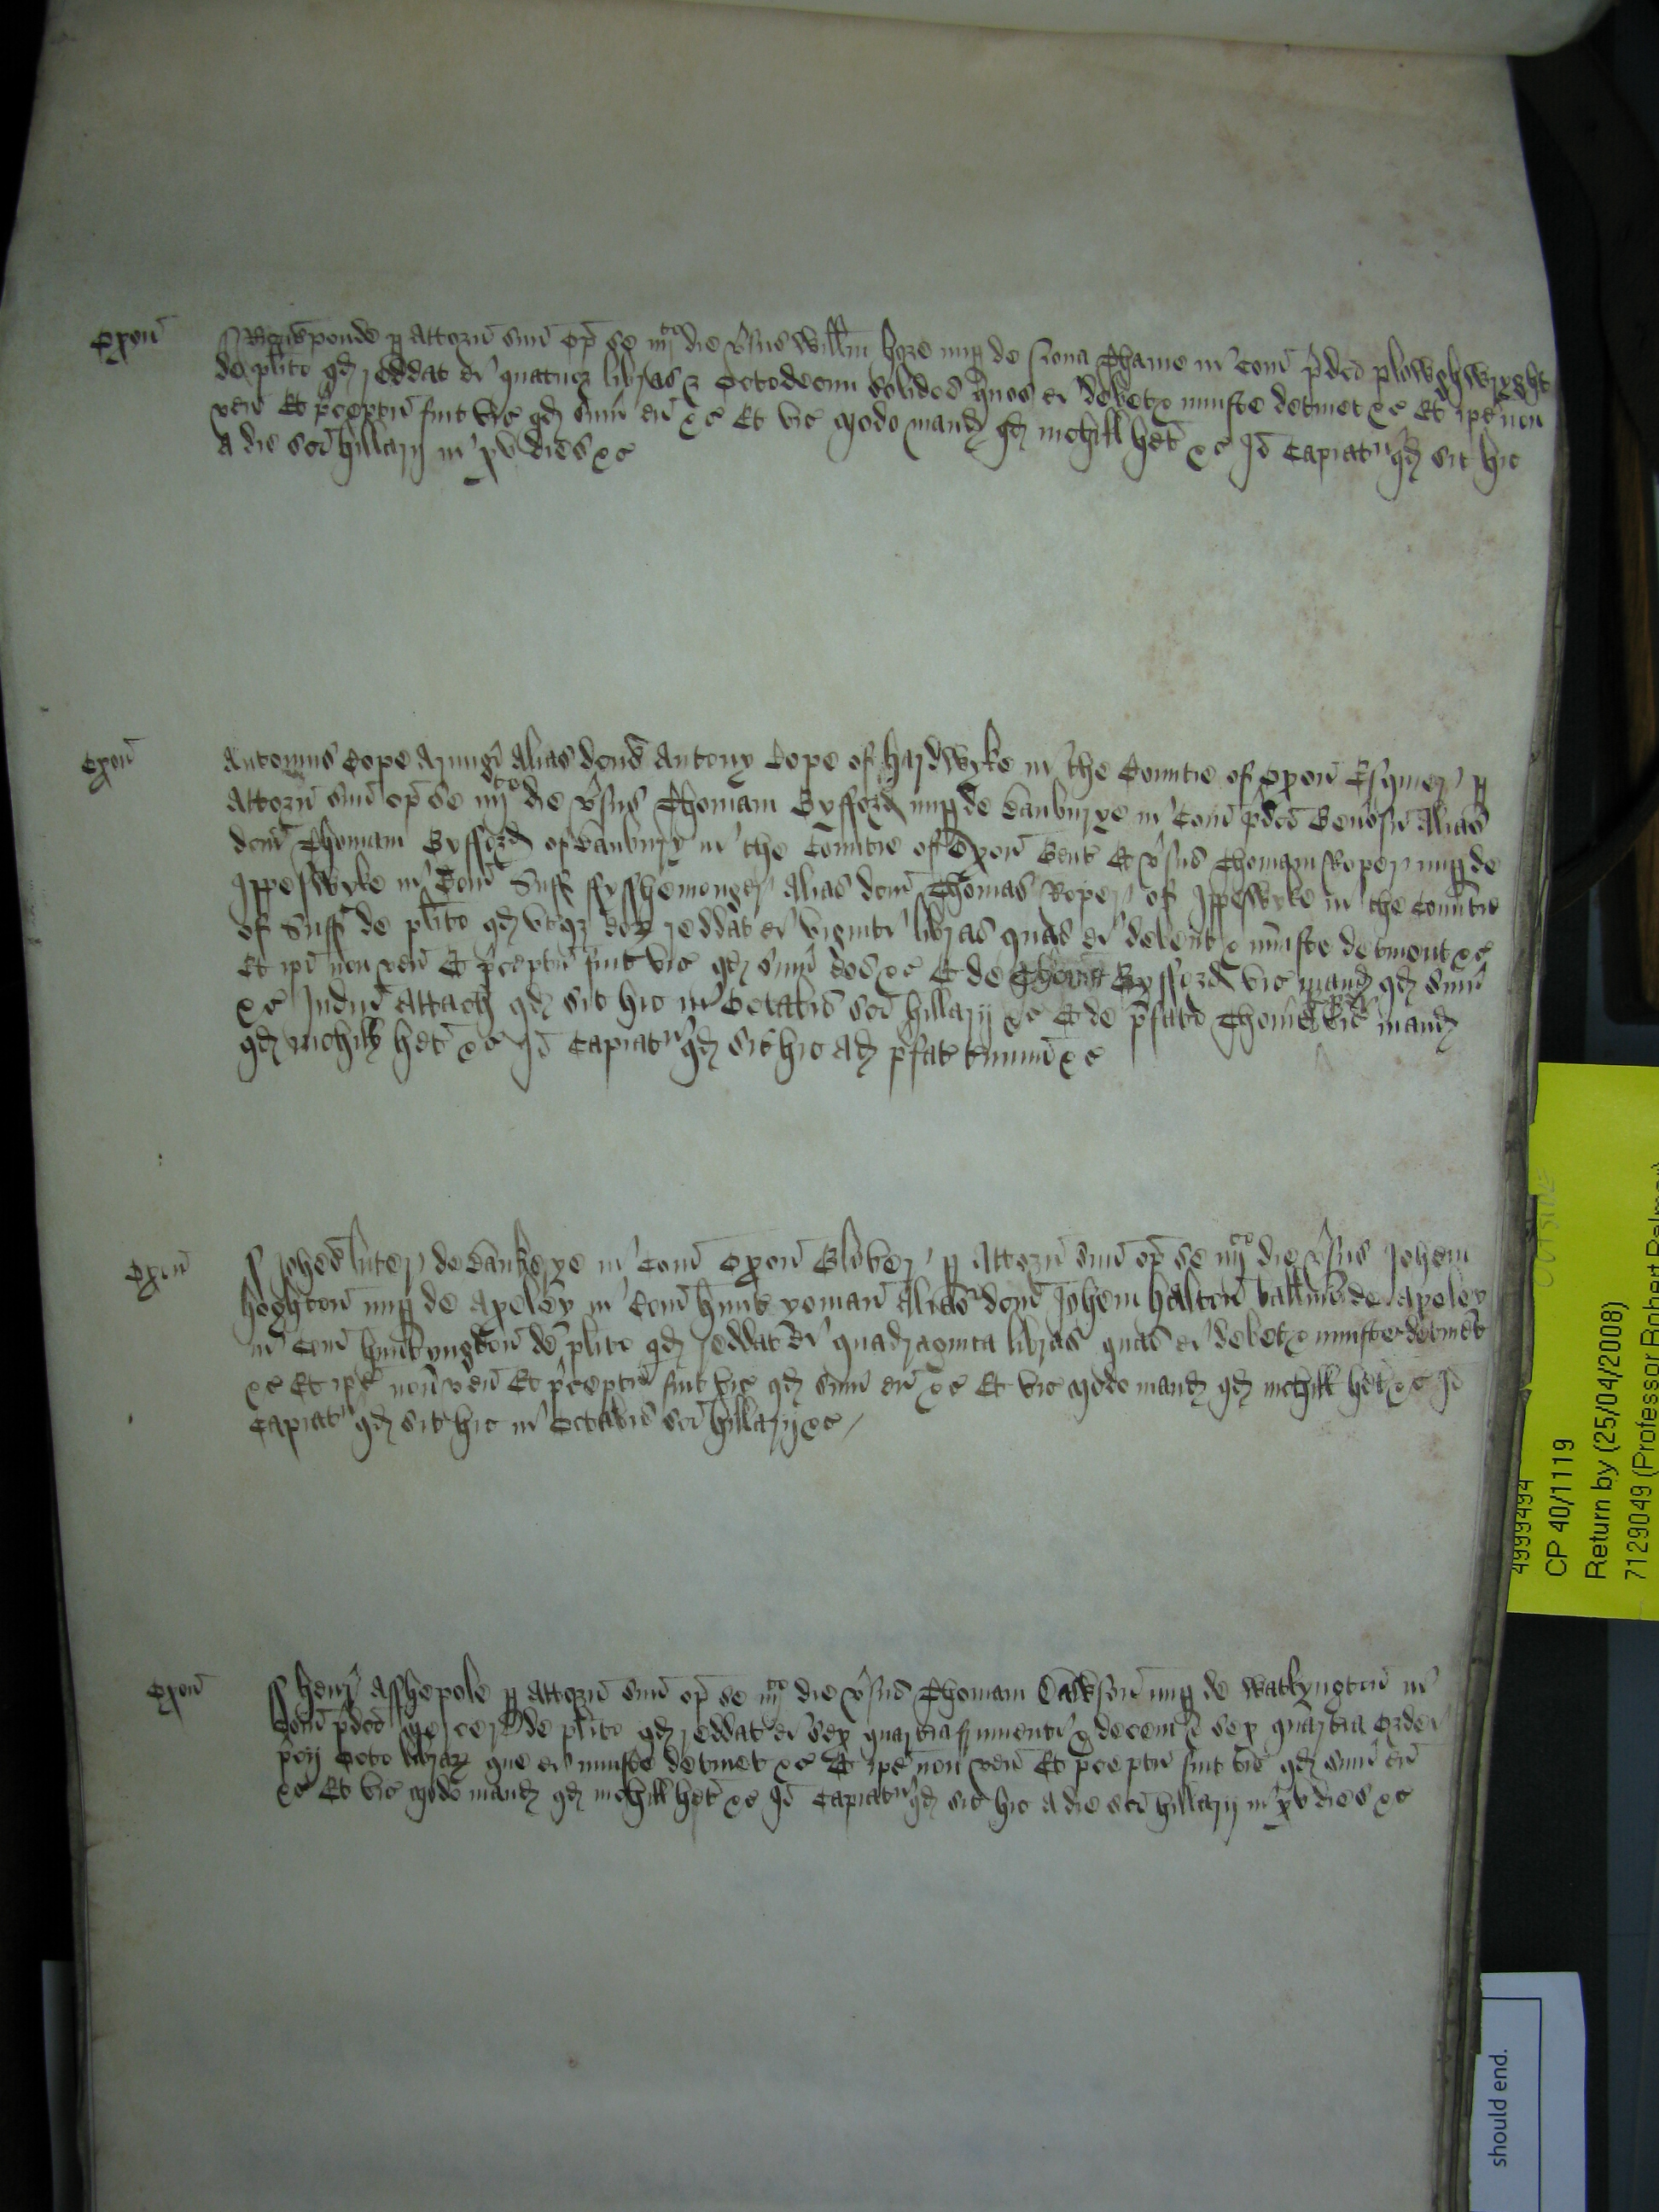 Oxon
p Attorn suu op se iiijto die vsus Willm hore nup de Thame in Com pdco plowghwryght
de plito qd reddat ei quatuor libras & octodecim solidos quos ei debet & iniuste detinet &c Et ipe non
ven Et pceptu fuit vic qd sum eu &c Et vic modo mand qd nichill het &c Io Capiatr qd sit hic
A die sci hillarij in xv dies &c
Oxon
Antonius Cope Armigr Alias dcus Antony Cope of hardwyke in the Countie of Oxon Esquier p
Attorn suu op se iiijto die vsus Thomam Gyfford nup de banburye in Com pdco Genosu Alias
dcm Thomam Gyfford of banbury in the Countie of Oxon Gent Et vsus Thomam Roper nup de
Ippeswyke in Com Suff ffysshemonger Alias dcm Thomas Roper of Ippeswyke in the Countie
of Suff de plito qd utqz eor reddat ei viginti libras quas ei debent & iniuste detinent &c
Et ipi non ven Et pceptu fuit vic qd sum eos &c Et de Thoma Gyfford vic mand qd sum
&c Iudiu Attach qd sit hic in Octabis sci hillarij &c Et de pfato Thoma vic mand
qd nichill het &c Io Capiatr qd sit hic Ad pfat tminu &c
Oxon
Johes luter de in Com Oxon Glover p Attorn suu op se iiijto die vsus Johem
heghton nup de Apeley in Com hunt yoman Alias dcm Johem halton ballium de Apeley
in Com huntyngton de plito qd reddat ei quadraginta libras quas ei debet & iniuste detinet
&c Et ipe non ven Et pceptu fuit vic qd sum eu &c Et vic modo mand qd nichill het &c Io
Capiatr qd sit hic in Octabis sci hillarij &c
Oxon
henr Asshepole p Attorn suu op se iiijto die vsus Thomam nup de Watlyngton in
Com pdco de plito qd reddat ei sex quarteria frumenti & decem & sex quarteria ordei
pcij octo librar que ei iniuste detinet &c Et ipe non ven Et pceptu fuit vic qd sum eu
&c Et vic modo mand qd nichill het &c Io Capiatr qd sit hic A die sci hillarij in xv dies &c
4999494
CP 40/1119
Return by (25/04/2008)
7129049 (Professor Robert Palmer)
OUTSIDE
should end.